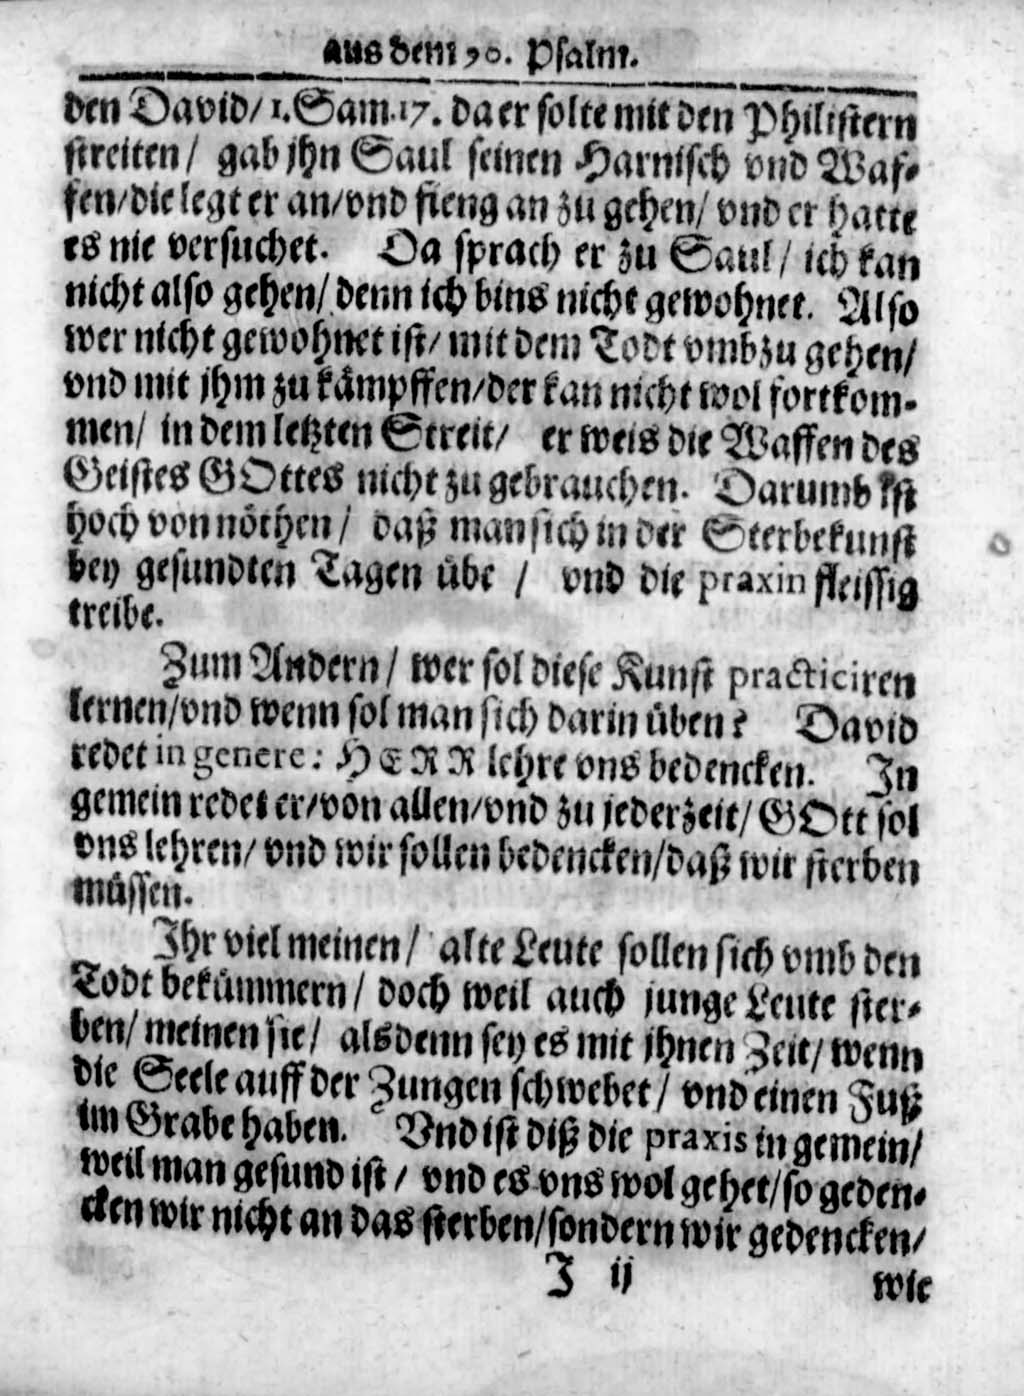 aus dem 90. Psalm.
den David/ 1. Sam. 17. da er solte mit den Philistern
streiten/ gab jhn Saul seinen Harnisch vnd Waf-
fen/die legt er an/vnd fieng an zu gehen/ vnd er hatte
es nie versuchet. Da sprach er zu Saul/ ich kan
nicht also gehen/ denn ich bins nicht gewohnet. Also
wer nicht gewohnet ist/ mit dem Todt vmbzu gehen/
vnd mit jhm zu kämpffen/der kan nicht wol fortkom-
men/ in dem letzten Streit/ er weis die Waffen des
Geistes GOttes nicht zu gebrauchen. Darumb ist
hoch von nöthen/ daß man sich in der Sterbekunst
bey gesundten Tagen übe / vnd die praxin fleissig
treibe.
Zum Andern/ wer sol diese Kunst practiciren
lernen/vnd wenn sol man sich darin üben? David
redet in genere: HERR lehre vns bedencken. In
gemein redet er/von allen/vnd zu jederzeit/ GOtt sol
vns lehren/ vnd wir sollen bedencken/daß wir sterben
müssen.
Ihr viel meinen/ alte Leute sollen sich vmb den
Todt bekümmern/ doch weil auch junge Leute ster-
ben/ meinen sie/ alsdenn sey es mit jhnen Zeit/ wenn
die Seele auff der Zungen schwebet/ vnd einen Fuß
im Grabe haben. Vnd ist diß die praxis in gemein/
weil man gesund ist/ vnd es vns wol gehet/so geden-
cken wir nicht an das sterben/sondern wir gedencken/
J ij
wie